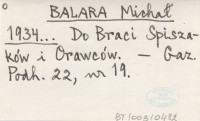 BALARA Michał
1934... Do Braci Spisza-
ków i Orawców. — Gaz.
Podh. 22, nr 19.
BT/003/0482